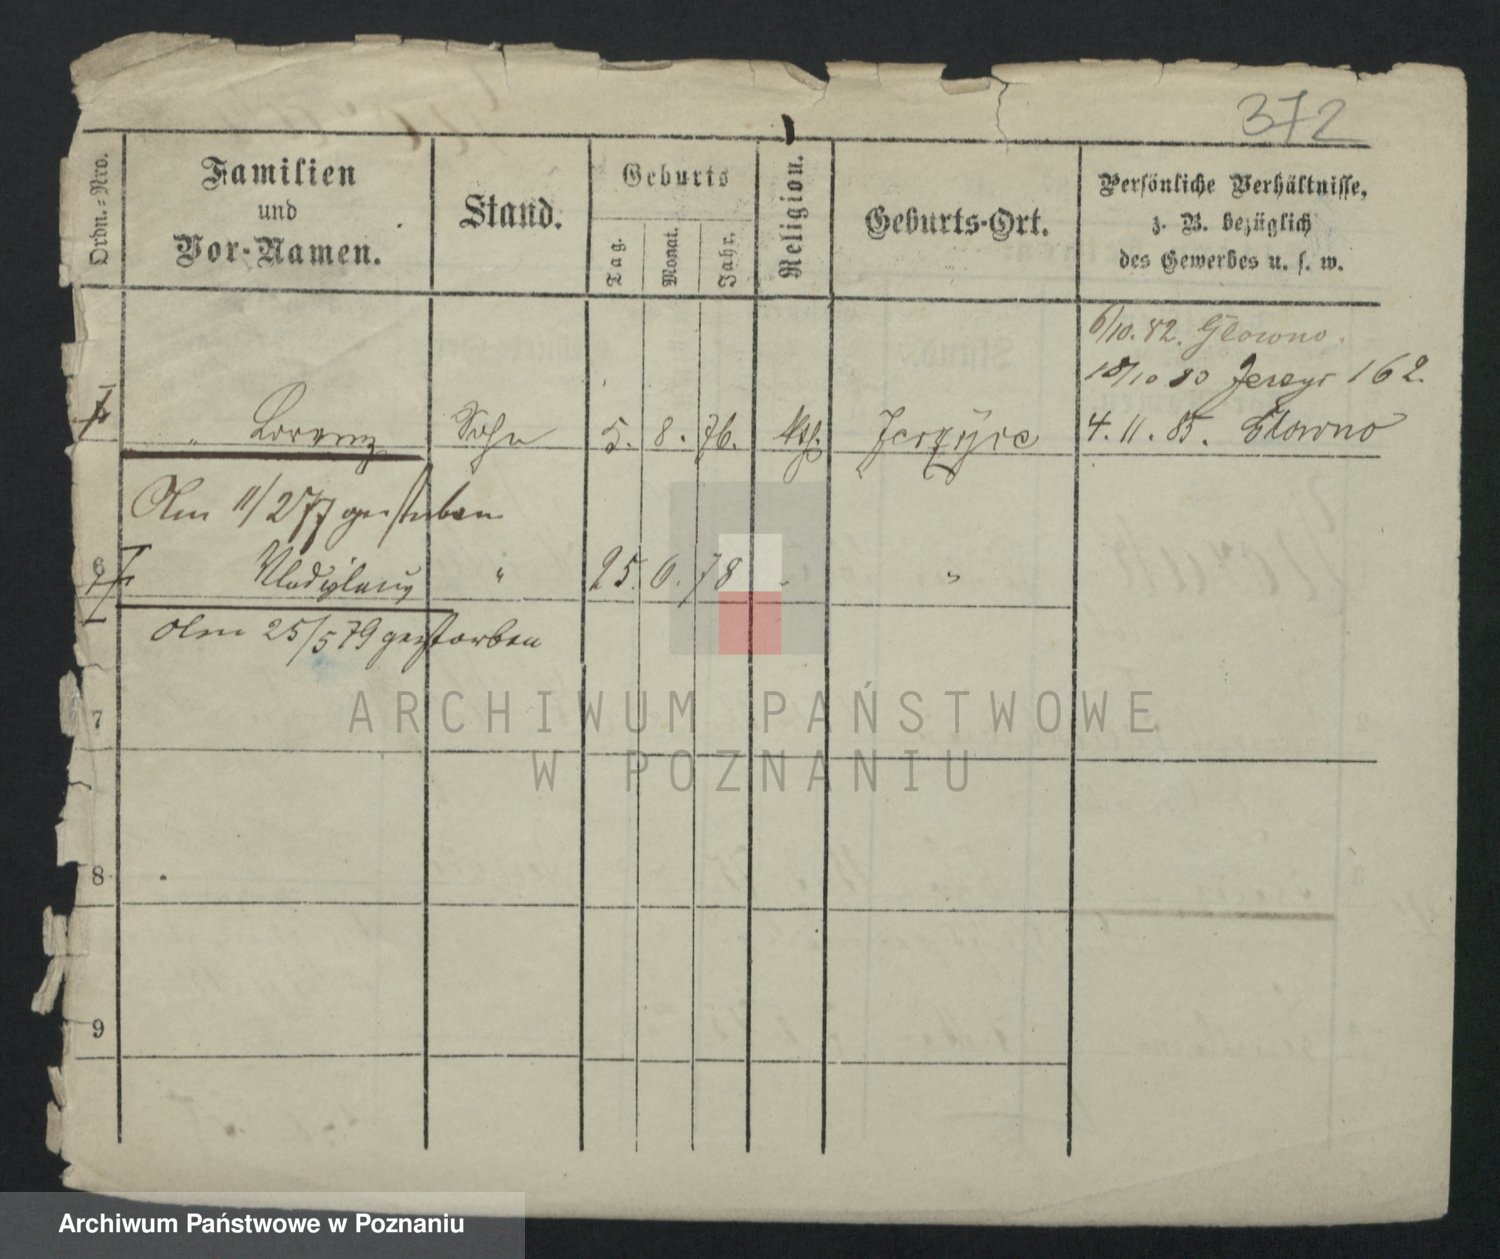 372
Ordn.-Nro.
Familien
und
Vor-Namen.
Stand.
Geburts
Tag.
Monat.
Jahr.
Religion.
Geburts-Ort.
Persönliche Verhältnisse,
z. B. bezüglich
des Gewerbes u. s. w.
6/10. 82. Glowno.
18/10 80 Jerzyc 162.
" Lorenz Sohn 5. 8. 76. kth. Jerzyce 4. 11. 85. Glowno
Am 11/2 77 gestorben
6 Vladislaus " 25. 6. 78 " "
Am 25/5 79 gestorben
7
ARCHIWUM PAŃSTWOWE
W POZNANIU
8
9
Archiwum Państwowe w Poznaniu